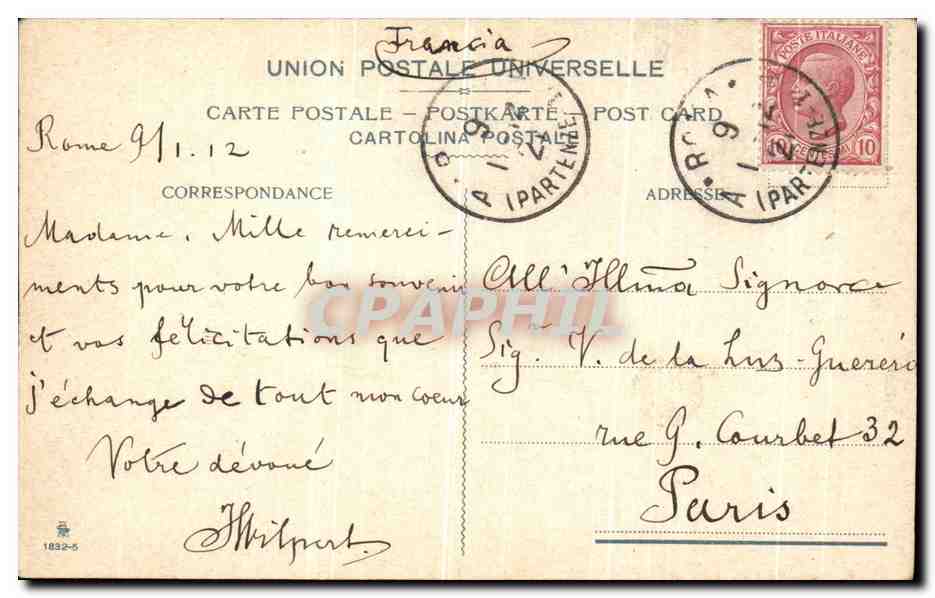 Francia
UNION POSTALE UNIVERSELLE
CARTE POSTALE – POSTKARTE – POST CARD
CARTOLINA POSTALE
POSTE ITALIANE
10
ROMA
9 1 12
(PARTENZE)
Rome 9/1.12
CORRESPONDANCE
Madame, Mille remerci-
ments pour votre bon souvenir
et vos félicitations que
j'échange de tout mon coeur
Votre dévoué
JWilpert.
1832-5
ADRESSE
All' Illma Signora
Sig. V. de la Luz-Guereró
rue G. Courbet 32
Paris
CPAPHIL